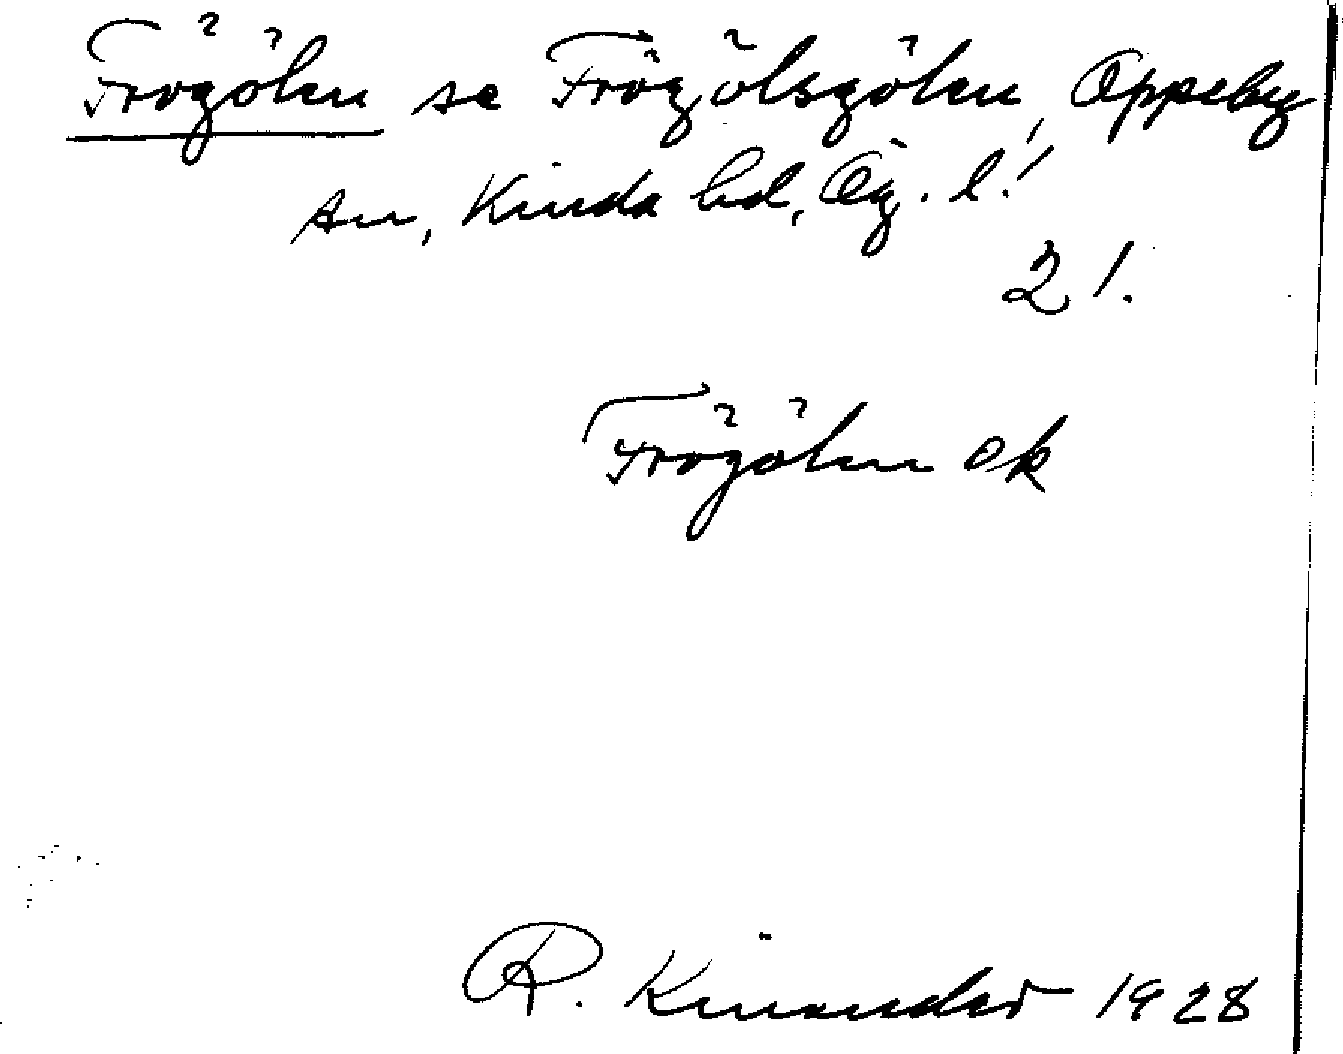 Frögölen se Frögölsgölen, Oppeby
sn, Kinda hd, Ög. l.!
2 !.
Frögölen ek
R. Kinander 1928